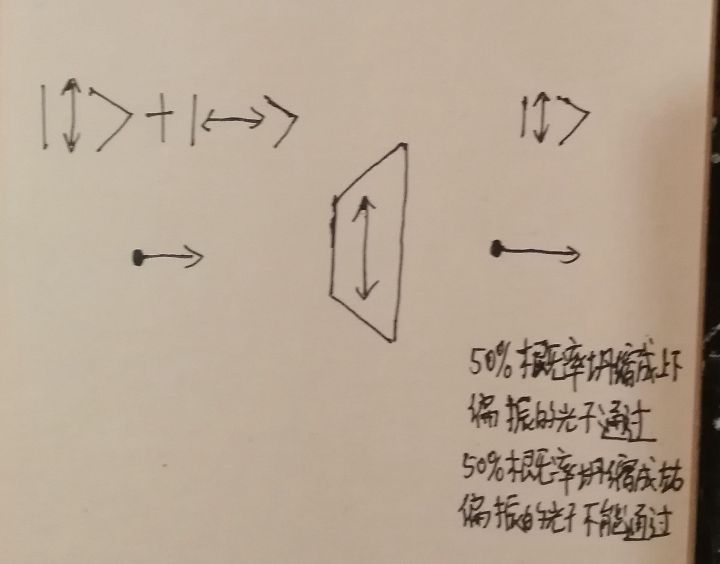 |↕⟩+|↔⟩
|↕⟩
50%概率坍缩成上下
偏振的光子通过
50%概率坍缩成左右
偏振的光子不能通过